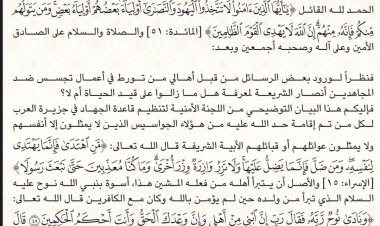 الحمد لله القائل ﴿يَا أَيُّهَا الَّذِينَ آمَنُوا لَا تَتَّخِذُوا الْيَهُودَ وَالنَّصَارَى أَوْلِيَاءَ بَعْضُهُمْ أَوْلِيَاءُ بَعْضٍ وَمَن يَتَوَلَّهُم
مِّنكُمْ فَإِنَّهُ مِنْهُمْ إِنَّ اللَّهَ لَا يَهْدِي الْقَوْمَ الظَّالِمِينَ﴾ [المائدة: ٥١] والصلاة والسلام على الصادق
الأمين وعلى آله وصحبه أجمعين وبعد:
فنظراً لورود بعض الرسائل من قبل أهالي من تورط في أعمال تجسس ضد
المجاهدين أنصار الشريعة لمعرفة هل ما زالوا على قيد الحياة أم لا؟
فإليكم هذا البيان التوضيحي من اللجنة الأمنية لتنظيم قاعدة الجهاد في جزيرة العرب
لكل من تم إقامة حد الله عليه من هؤلاء الجواسيس الذين لا يمثلون إلا أنفسهم
ولا يمثلون عوائلهم أو قبائلهم الأبية الشريفة قال الله تعالى: ﴿مَّنِ اهْتَدَى فَإِنَّمَا يَهْتَدِي
لِنَفْسِهِ وَمَن ضَلَّ فَإِنَّمَا يَضِلُّ عَلَيْهَا وَلَا تَزِرُ وَازِرَةٌ وِزْرَ أُخْرَى وَمَا كُنَّا مُعَذِّبِينَ حَتَّى نَبْعَثَ رَسُولًا﴾
[الإسراء: ١٥] والأصل أن يتبرأ أهله من فعله المشين هذا، أسوة بنبي الله نوح عليه
السلام الذي تبرأ من ولده حين لم يؤمن بالله وكان مع الكافرين قال الله تعالى:
﴿وَنَادَى نُوحٌ رَّبَّهُ فَقَالَ رَبِّ إِنَّ ابْنِي مِنْ أَهْلِي وَإِنَّ وَعْدَكَ الْحَقُّ وَأَنتَ أَحْكَمُ الْحَاكِمِينَ ٤٥ قَالَ